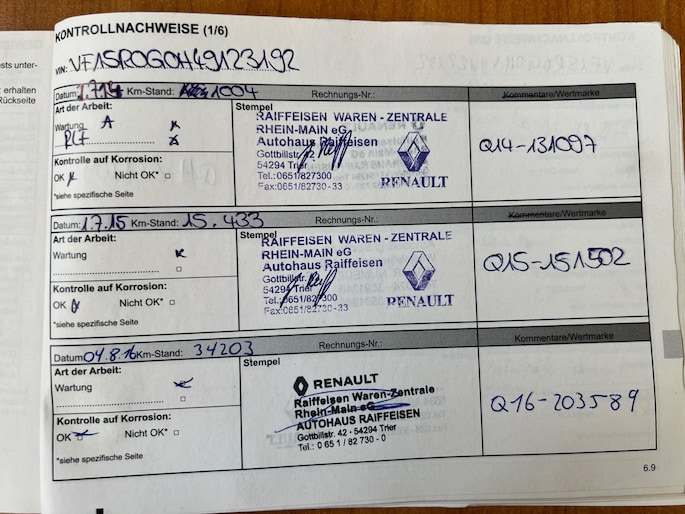 ests unter-
erhalten
Rückseite
KONTROLLNACHWEISE (1/6)
VIN: VF15R0G0H49123192
Datum: 1.7.14 Km-Stand: 1004 Rechnungs-Nr.: Kommentare/Wertmarke
Art der Arbeit: Stempel
Wartung A x
RLF x
Kontrolle auf Korrosion:
OK x Nicht OK* □
*siehe spezifische Seite
RAIFFEISEN WAREN - ZENTRALE
RHEIN-MAIN eG
Autohaus Raiffeisen
Gottbillstr.
54294 Trier
Tel.: 0651/827300
Fax:0651/82730-33
RENAULT
Q14-131097
Datum: 1.7.15 Km-Stand: 15.433 Rechnungs-Nr.: Kommentare/Wertmarke
Art der Arbeit: Stempel
Wartung x
□
Kontrolle auf Korrosion:
OK x Nicht OK* □
*siehe spezifische Seite
RAIFFEISEN WAREN - ZENTRALE
RHEIN-MAIN eG
Autohaus Raiffeisen
Gottbillstr.
54294 Trier
Tel.:0651/827300
Fax:0651/82730-33
RENAULT
Q15-151502
Datum: 04.8.16 Km-Stand: 34203 Rechnungs-Nr.: Kommentare/Wertmarke
Art der Arbeit: Stempel
Wartung x
□
Kontrolle auf Korrosion:
OK x Nicht OK* □
*siehe spezifische Seite
RENAULT
Raiffeisen Waren-Zentrale
Rhein-Main eG
AUTOHAUS RAIFFEISEN
Gottbillstr. 42 - 54294 Trier
Tel.: 0 65 1 / 82 730 - 0
Q16-203589
6.9